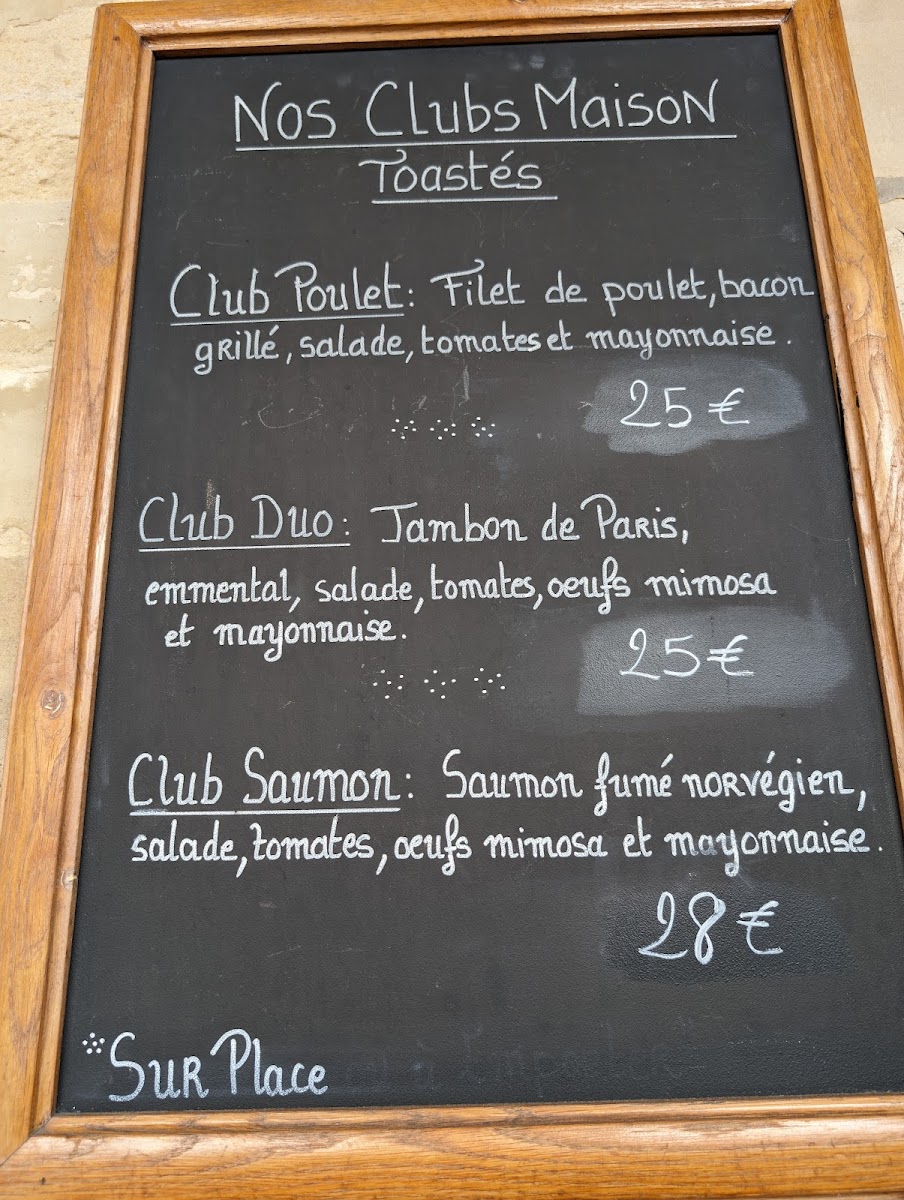 Nos Clubs Maison
Toastés
Club Poulet: Filet de poulet, bacon
grillé, salade, tomates et mayonnaise.
25 €
Club Duo: Jambon de Paris,
emmental, salade, tomates, oeufs mimosa
et mayonnaise.
25 €
Club Saumon: Saumon fumé norvégien,
salade, tomates, oeufs mimosa et mayonnaise.
28 €
*Sur Place